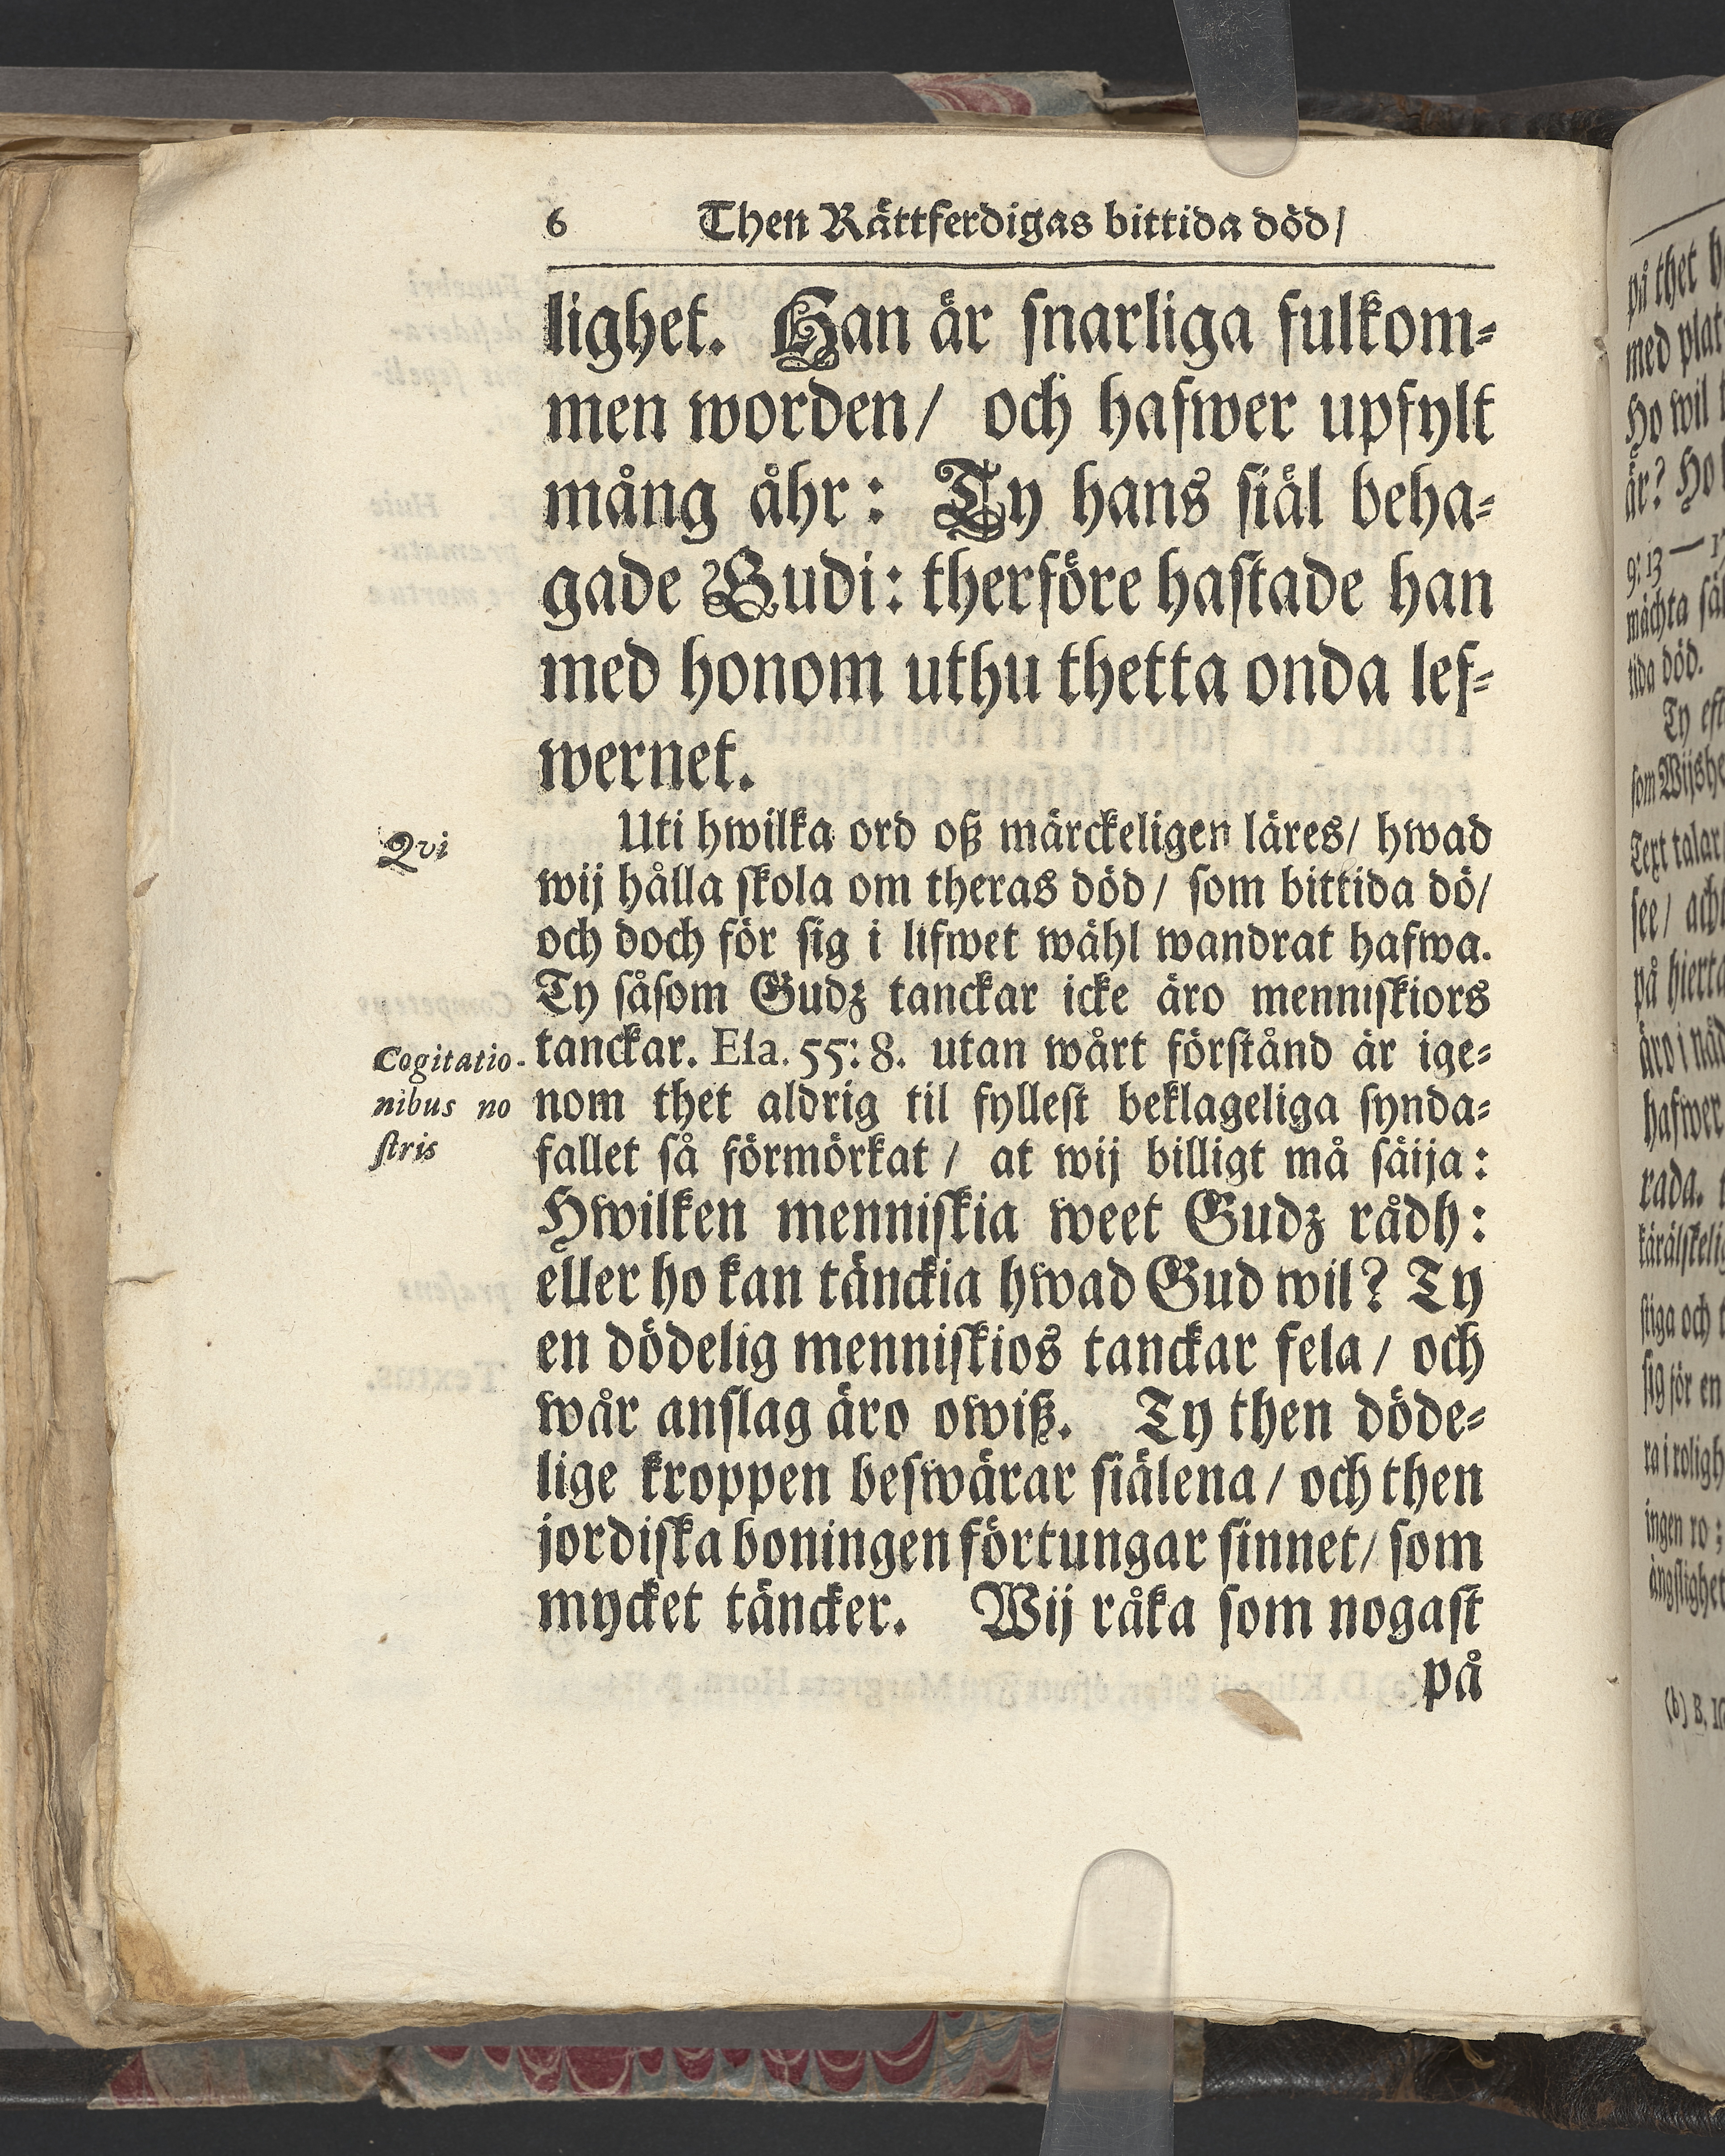 6 Then Rättferdigas bittida död/
lighet. Han är snarliga fulkom-
men worden/ och hafwer upfylt
mång åhr: Ty hans siäl beha-
gade Gudi: therföre hastade han
med honom uthu thetta onda lef-
wernet.
Qvi
Uti hwilka ord oß märckeligen läres/ hwad
wij hålla skola om theras död/ som bittida dö/
och doch för sig i lifwet wähl wandrat hafwa.
Ty såsom Gudz tanckar icke äro menniskiors
Cogitatio-
nibus no
stris
tanckar. Esa. 55: 8. utan wårt förstånd är ige-
nom thet aldrig til fyllest beklageliga synda-
fallet så förmörkat/ at wij billigt må säija:
Hwilken menniskia weet Gudz rådh:
eller ho kan tänckia hwad Gud wil? Ty
en dödelig menniskios tanckar fela/ och
wår anslag äro owiß. Ty then döde-
lige kroppen beswärar siälena/ och then
jordiska boningen förtungar sinnet/ som
mycket täncker. Wij råka som nogast
på
på thet
med plat
Ho wil
är? Ho
9: 13 — 17
tida död.
Ty
Text talar
see/
på hierta
äro i nåd
hafwer
rada.
stiga och
sig för en
ingen ro;
(b) B.